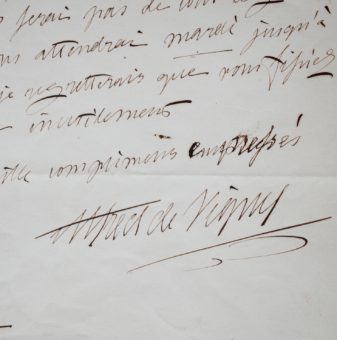 serais pas de
attendrai mardi jusqu'à
je regretterais que vous
inutilement
mille complimens empressés
Alfred de Vigny